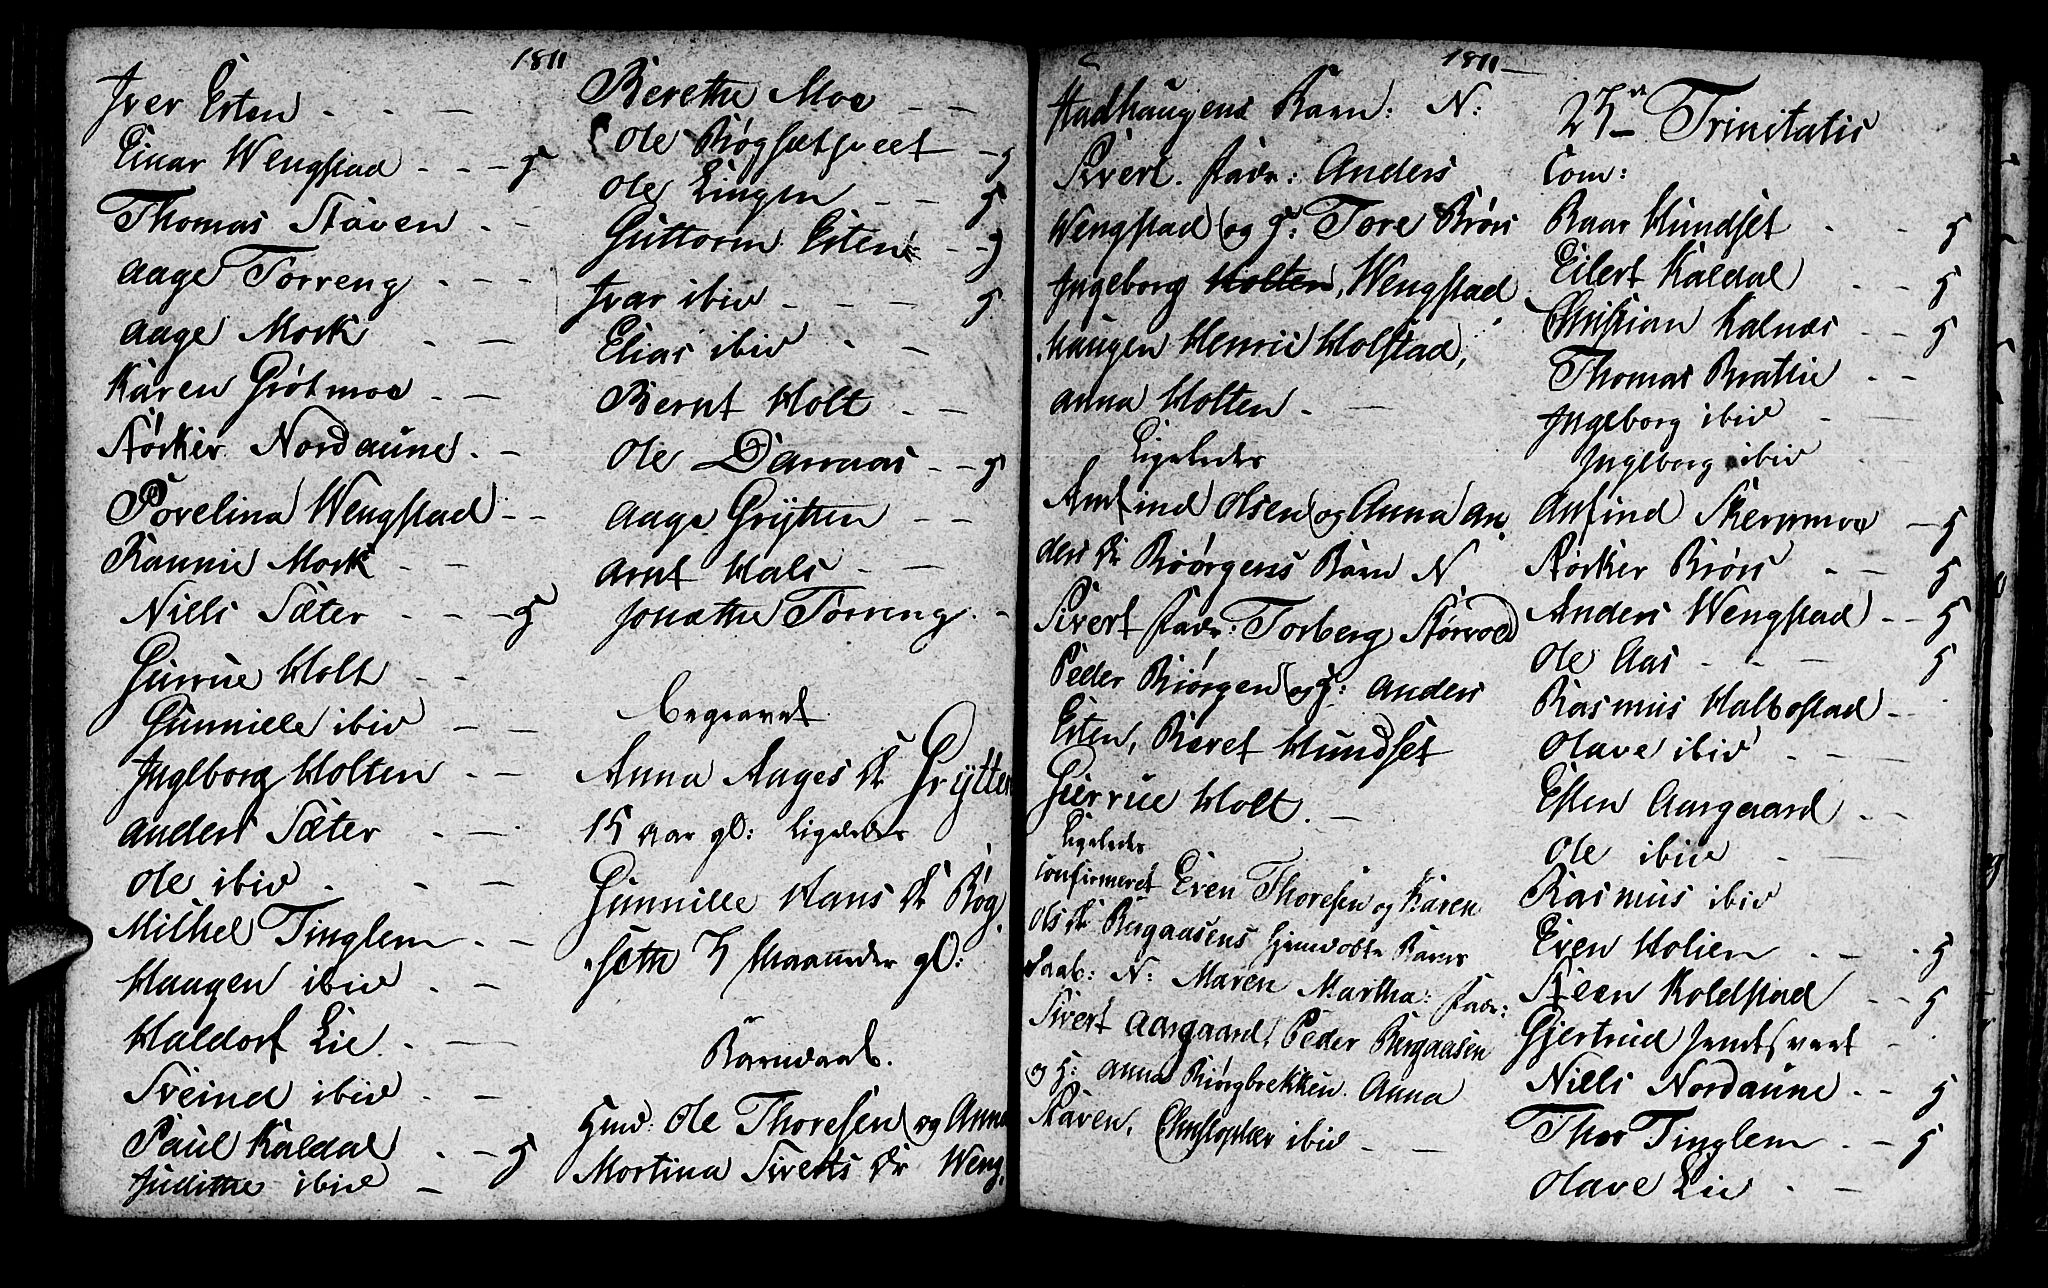 1811
Iver Esten - - -
Einar Wengstad - - - 5
Thomas Støven - -
Aage Torreng - - -
Aage Mork - -
Karen Grøtmoe - -
Størker Nordaune - -
Povelina Wengstad - -
Rannie Mork - -
Niels Sæter - - - 5
Gurrue Holt - -
Gunnille ibid - -
Ingeborg Holten - -
Anders Sæter - -
Ole ibid - - -
Mikkel Tinglem - -
Haagen ibid - -
Haldorf Lie - -
Sveind ibid - -
Paul Kaldal - - 5
Judithe ibid -
Berethe Moe - -
Ole Røgsætsveet - 5
Ole Lingen - - 5
Guttorm Esten - - 5
Ivar ibid - - - 5
Elias ibid - -
Bernt Holt - -
Ole Damaas - - 5
Aage Grytten - -
Arnt Hals - -
Jonethe Torreng - -
Begravet
Anna Aages Dr Grytten
15 Aar gl: Ligeledes
Gunnille Hans Dr Røg
sæth 5 Maaneder gl:
Barnedaab.
Gmd: Ole Thoresen og Anna
Mortina Siverts Dr Weng
1811
stadhaugens Barn: N:
Sivert. Fadr: Anders
Wengstad og G: Tore Brøs
Ingeborg Holten, Wengstad
haugen Henric Holstad,
Anna Holten. -
Ligeledes
Amfind Olsen og Anna An
ders Dr Biørgens Barn N
Sivert Fadr: Torberg Størvold
Peder Biørgen og G: Anders
Esten, Beret Hundset
Gurrue Holt. -
Ligeledes
Confirmeret Even Thoresen og Karen
Ols Dr Bergaasens hjemdøbte Barns
Daab: N: Maren Martha: Fadr:
Sivert Aargaard, Peder Bergaasen
og G: Anna Biørgbrekken. Anna
Støven, Christopher ibid - -
23n Trinitatis
Com:
Baar Hundset - - 5
Eilert Kaldal - - 5
Christian Kalnæs - - 5
Thomas Brattie - -
Ingeborg ibid - -
Ingeborg ibid -
Anfind Skermoe - 5
Størker Brøs - - 5
Anders Wengstad - - 5
Ole Aas - - - 5
Rasmus Halbostad - -
Olave ibid - -
Esten Aargaard - -
Ole ibid - -
Rasmus ibid
Even Holien - - 5
Steen Koldstad - - 5
Gjertrud Jemtsveet -
Niels Nordaune - - 5
Thor Tinglem - - 5
Olave Lie - -